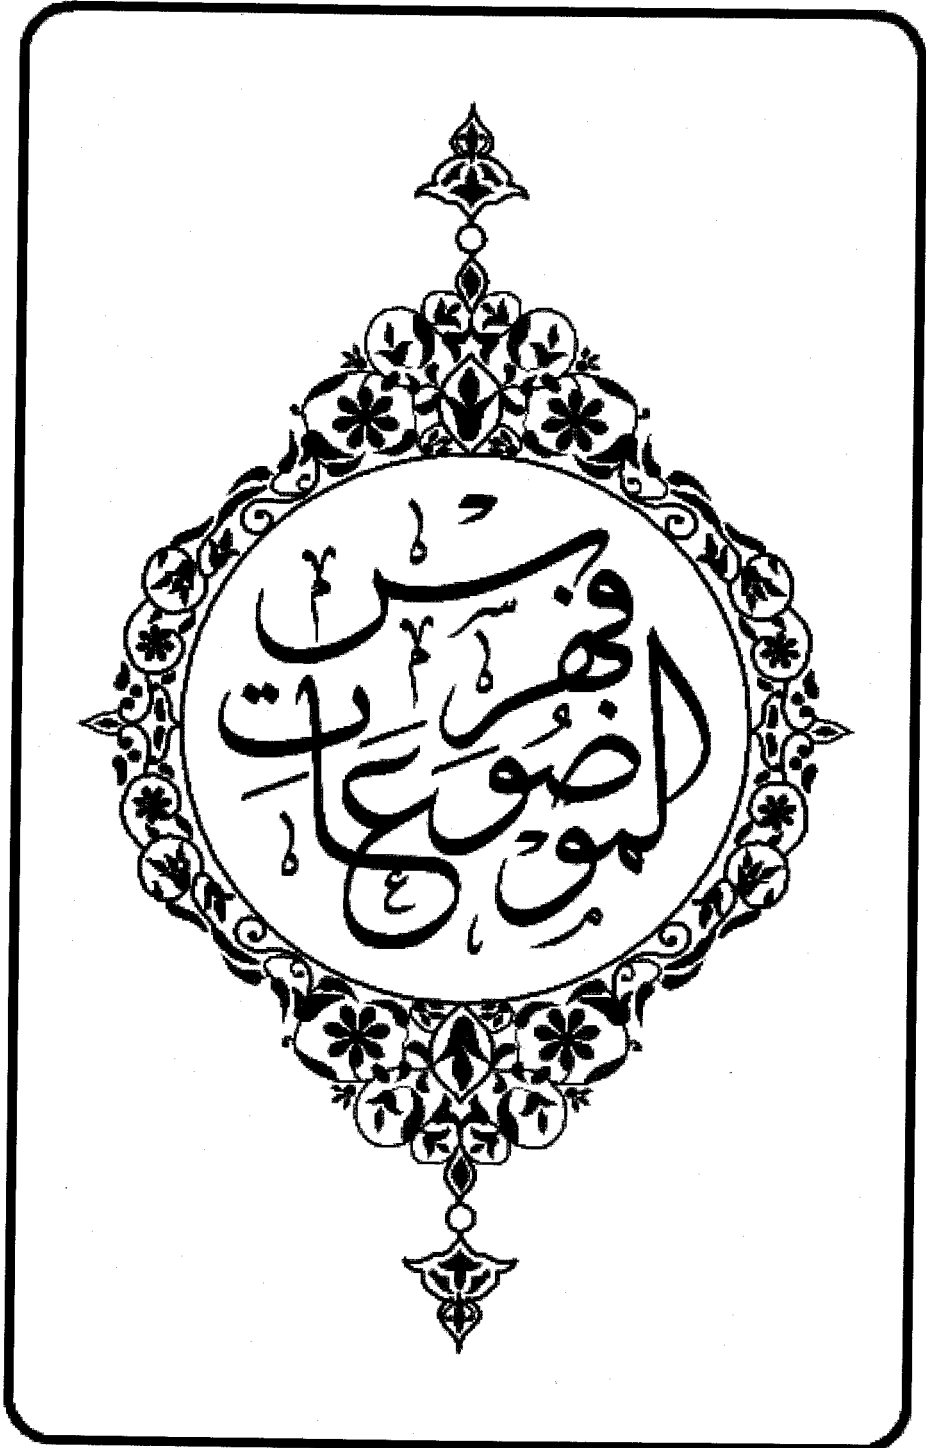 فهرس
الموضوعات